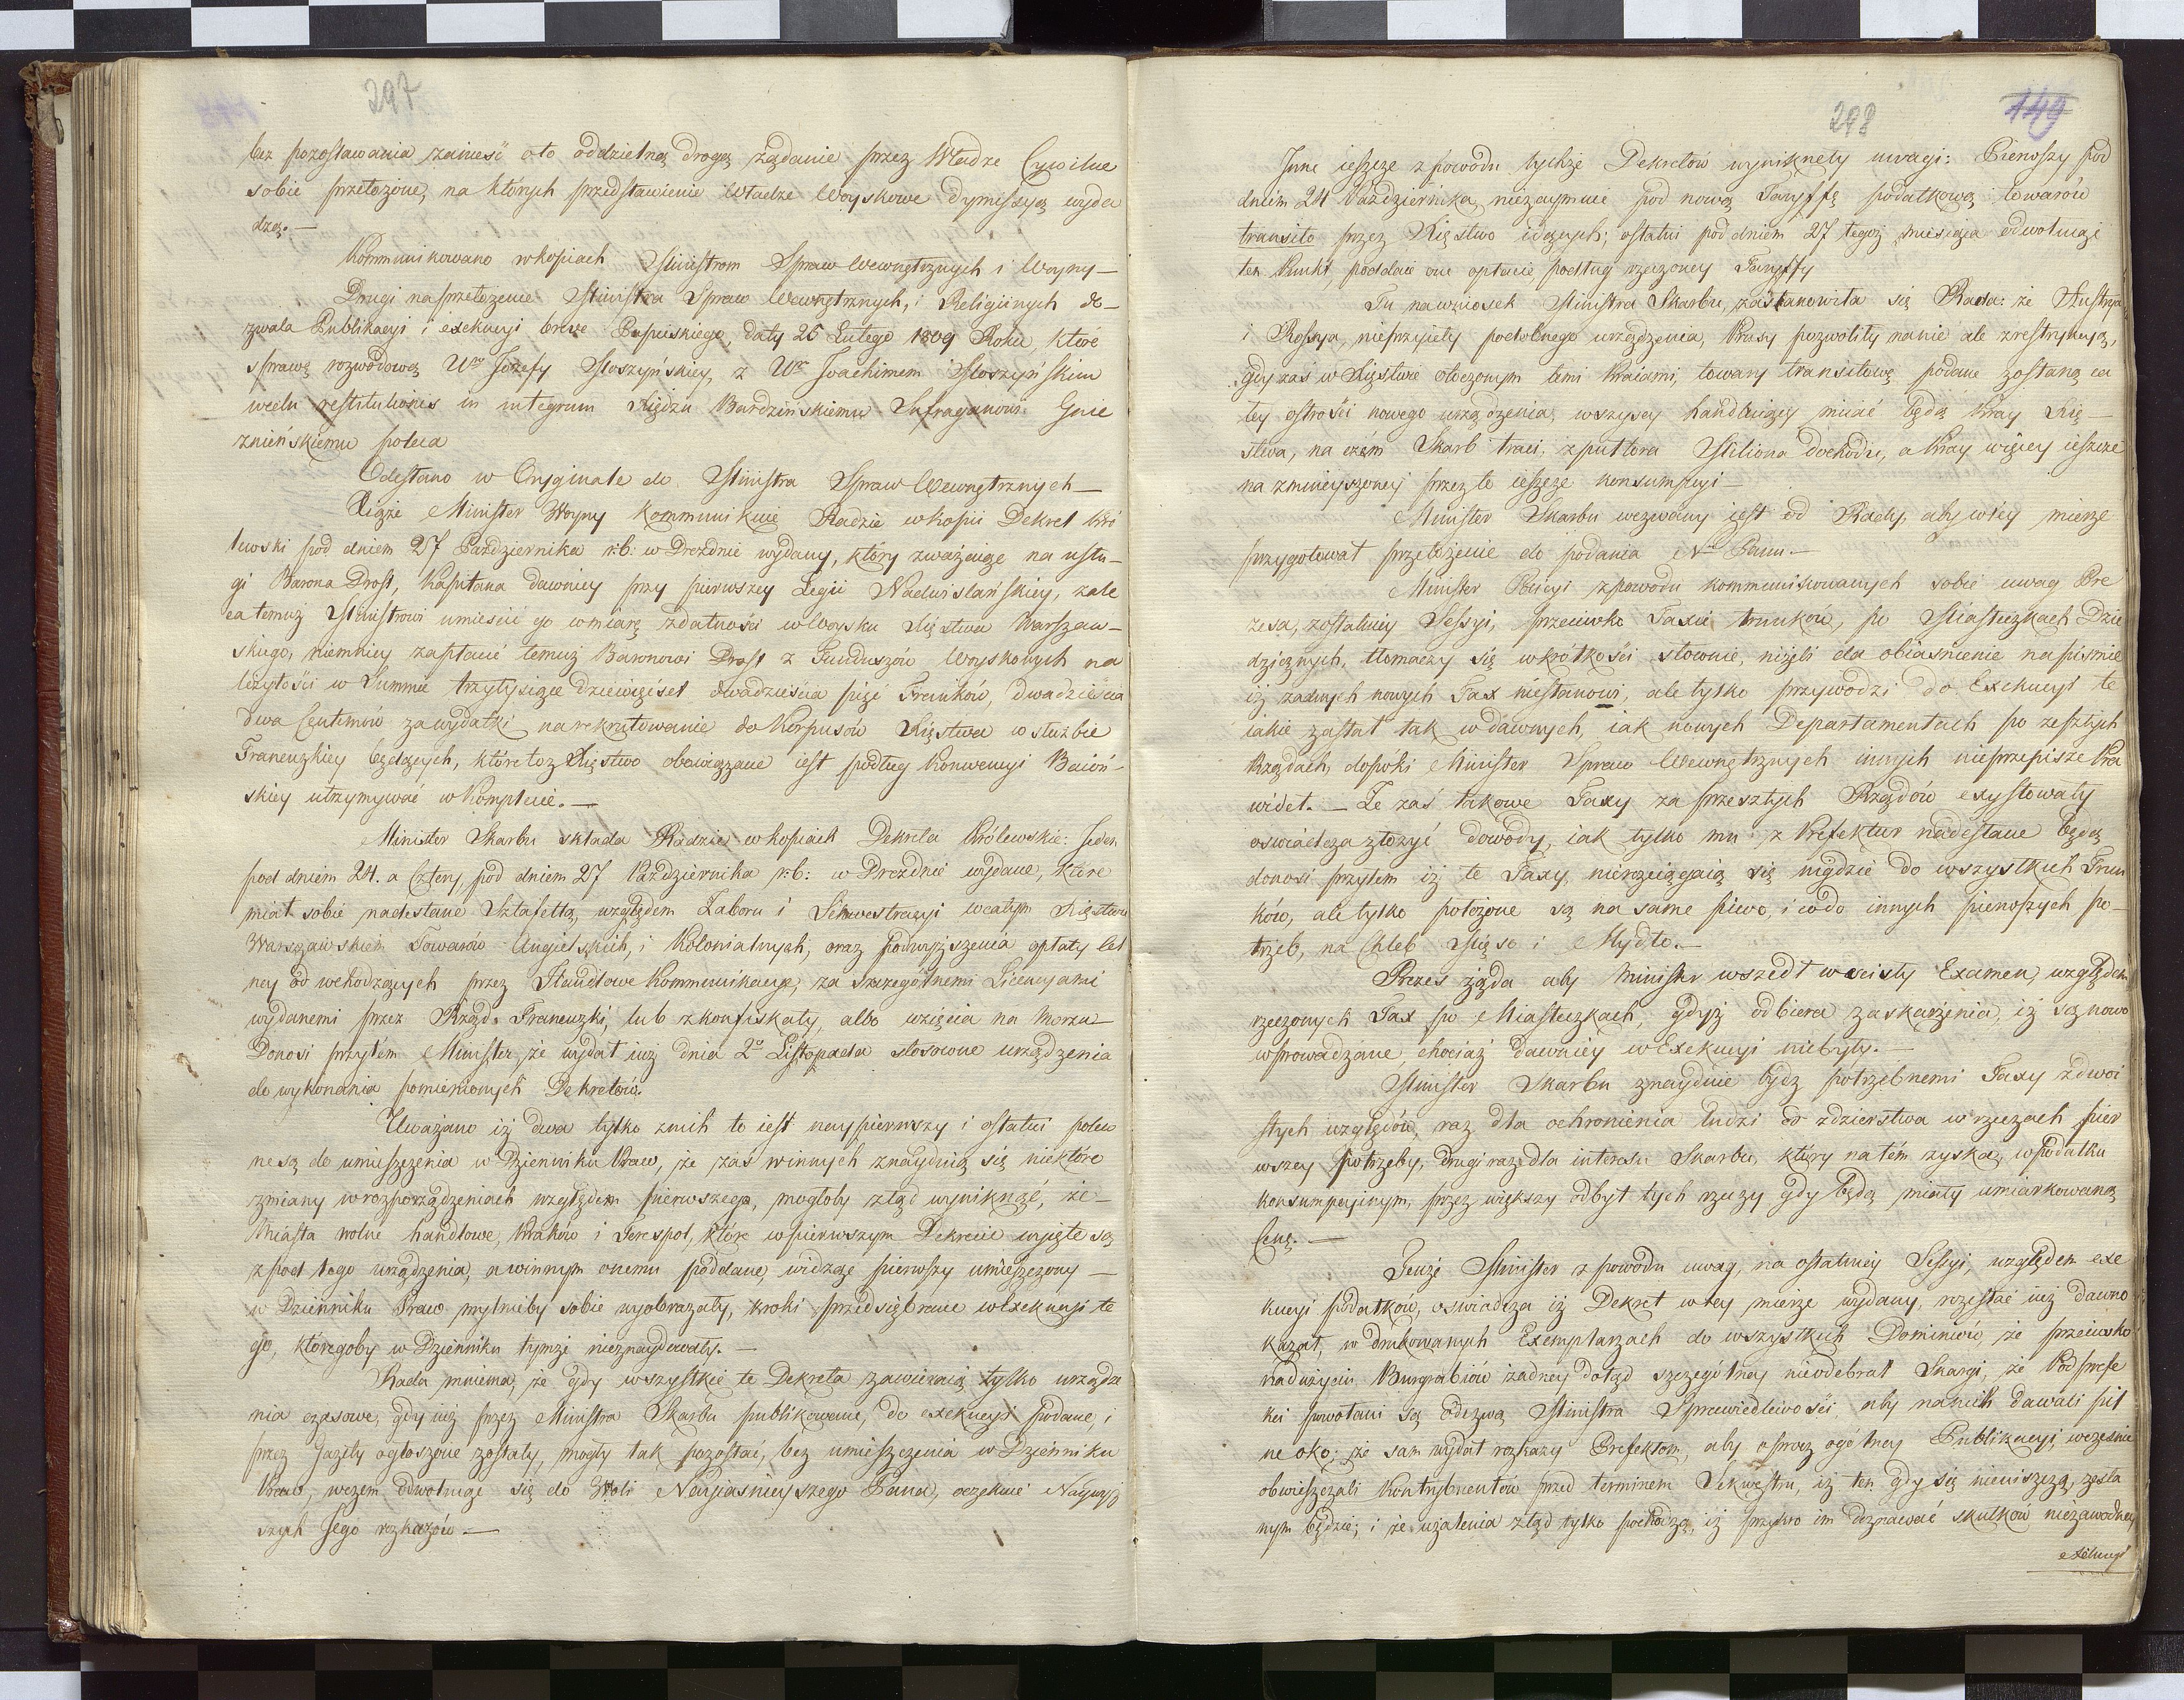 297
bez pozostawania zanieść o to oddzielną drogą żądanie przez Władze Cywilne
sobie przełożone, na których przedstawienie Władze Woyskowe dymissyą wyda
dzą. —
Kommunikowano w kopiach Ministrom Spraw Wewnętrznych i Woyny —
Drugi na przełożenie Ministra Spraw Wewnętrznych, i Religiinych do-
zwala Publikacyi i exekucyi breve Papieskiego, daty 25 Lutego 1809 Roku, które
sprawę rozwodową Ur Jozefy Słoszyńskiey, z Ur Joachimem Słoszyńskim
restitutiones in integrum Xiędzu Bardzińskiemu Sufraganowi Gnie
znieńskiemu poleca
Odesłano w Oryginale do Ministra Spraw Wewnętrznych —
Xiąże Minister Woyny kommunikuie Radzie w kopii Dekret Kró
lewski pod dniem 27 Października r: b: w Dreźdnie wydany, który zważaiąc na usłu-
gi Barona Drost, Kapitana dawniey przy pierwszey Legii Nadwislańskiey, zale
ca temuż Ministrowi umieścić go w miarę zdatności w Woysku Xięstwa Warszaw-
skiego, niemniey zapłacić temuż Baronowi Drost z Funduszów Woyskowych na
leżytości w Summie trzytysiące dziewięćset dwadzieścia pięć Franków, dwadzieścia
dwa Centimów za wydatki na rekrutowanie do Korpusów Xięstwa w służbie
Francuzkiey będących, które to Xięstwo obowiązane iest podług Konwencyi Baioń-
skiey utrzymywać w Komplecie. —
Minister Skarbu składa Radzie w kopiach Dekreta Królewskie: Jeden
pod dniem 24. a cztery pod dniem 27 Października r: b: w Dreźdnie wydane, które
miał sobie nadesłane Sztafettą, względem Zaboru i Sekwestracyi w całym Xięstwie
Warszawskiem Towarów Angielskich, i Kolonialnych, oraz podwyższenia opłaty cel
ney od wchodzących przez Handlowe Kommunikacye, za szczególnemi Licencyami
wydanemi przez Rząd Francuzki, lub z konfiskaty, albo wzięcia na morzu —
Donosi przytém Minister, że wydał iuż dnia 2o Listopada stosowne urządzenia
do wykonania pomienionych Dekretów.
Uważano iż dwa tylko z nich to iest naypierwszy i ostatni polecο
ne są do umieszczenia w Dzienniku Praw, że zaś w innych znaydują się niektóre
zmiany w rozporządzeniach względem pierwszego, mogłoby ztąd wyniknąć, że —
Miasta wolne handlowe, Kraków i Terespol, które w pierwszym Dekrecie wyięte są
z pod tego urządzenia, a w innym onemu poddane, widząc pierwszy umieszczony —
w Dzienniku Praw mylnieby sobie wyobrażały, kroki przedsiębrane w Exekucyi te
go, któregoby w Dzienniku tymże nieznaydowały. —
Rada mniema, że gdy wszystkie te Dekreta zawieraią tylko urządze
nia czasowe, gdy iuż przez Ministra Skarbu publikowane, do exekucyi podane, i
przez Gazety ogłoszone zostały, mogły tak pozostać, bez umieszczenia w Dzienniku
Praw, w czem odwołuiąc się do Woli Nayiaśnieyszego Pana, oczekuie Naywyż
szych Jego rozkazów —
298
149
Inne ieszcze z powodu tychże Dekretów wyniknęły uwagi: Pierwszy pod
dniem 24 Października, niezaymuie pod nową Taryffę podatkową towarów
transito przez Xięstwo idących; ostatni pod dniem 27 tegoż miesiąca odwołuiąc
ten Punkt, poddaie one opłacie podług rzeczoney Taryffy
Tu na wniosek Ministra Skarbu, zastanowiła się Rada: że Austrya
i Rossya, nieprzyięły podobnego urządzenia, Prusy pozwoliły na nie ale z restrykcyą,
gdy zaś w Xięstwie otoczonym temi Kraiami, towary transitowe podane zostaną ca
łey ostrości nowego urządzenia, wszyscy handluiący miiać będą Kray Xię-
stwa, na czém Skarb traci, z pułtora Miliona dochodu, a Kray więcey ieszcze
na zmnieyszoney przez to ieszcze konsumpcyi —
Minister Skarbu wezwany iest od Rady, aby w tey mierze
przygotował przełożenie do podania N. Panu. —
Minister Policyi z powodu kommunikowanych sobie uwag Pre
zesa, z ostatniey Sessyi, przeciwko Taxie trunków, po Miasteczkach Dzie
dzicznych, tłomaczy się w krótkości słownie, niżeli da obiaśnienie na piśmie
iż żadnych nowych Tax niestanowi, ale tylko przywodzi do Exekucyi te
iakie zastał tak w dawnych, iak nowych Departamentach po zeszłych
Rządach, dopóki Minister Spraw Wewnętrznych innych nieprzepisze Pra
wideł. — Że zaś takowe Taxy za przeszłych Rządów exystowały
oświadcza złożyć dowody, iak tylko mu z Prefektur nadesłane będą
donosi przytem iż te Taxy nierozciągaią się nigdzie do wszystkich Trun
ków, ale tylko położone są na same piwo, i co do innych pierwszych po-
trzeb, na Chleb Mięso i Mydło. —
Prezes żąda aby Minister wszedł w ścisły Examen, względem
rzeczonych Tax po Miasteczkach, gdyż odbiera zaskarżenia, iż są nowo
wprowadzane, chociaż dawniey w Exekucyi niebyły. —
Minister Skarbu znayduie bydź potrzebnemi Taxy z dwoi
stych względów, raz dla ochronienia ludzi od zdzierstwa w rzeczach pier
wszey potrzeby, drugi raz dla interesu Skarbu, który na tém zyska, w podatku
konsumpcyinym, przez większy odbyt tych rzeczy gdy będą miały umiarkowaną
Cenę. —
Tenże Minister z powodu uwag, na ostatniey Sessyi, względem exe
kucyi podatków, oświadcza iż Dekret w tey mierze wydany, rozesłać iuż dawno
kazał, w drukowanych Exemplarzach do wszystkich Dominiów, że przeciwko
nadużyciu Burgrabiów żadney dotąd szczególney nieodebrał Skargi, że Podprefe
kci powołani są Odezwą Ministra Sprawiedliwości, aby na nich dawali pil
ne oko; że sam wydał rozkazy Prefektom, aby oprocz ogólney Publikacyi, wcześnie
obwieszczali Kontrybuentów przed terminem Sekwestru, iż ten gdy się nieuiszczą, zesła
nym będzie; i że użalenia ztąd tylko pochodzą, iż przykro im doznawać skutków niezawodney
exekucyi